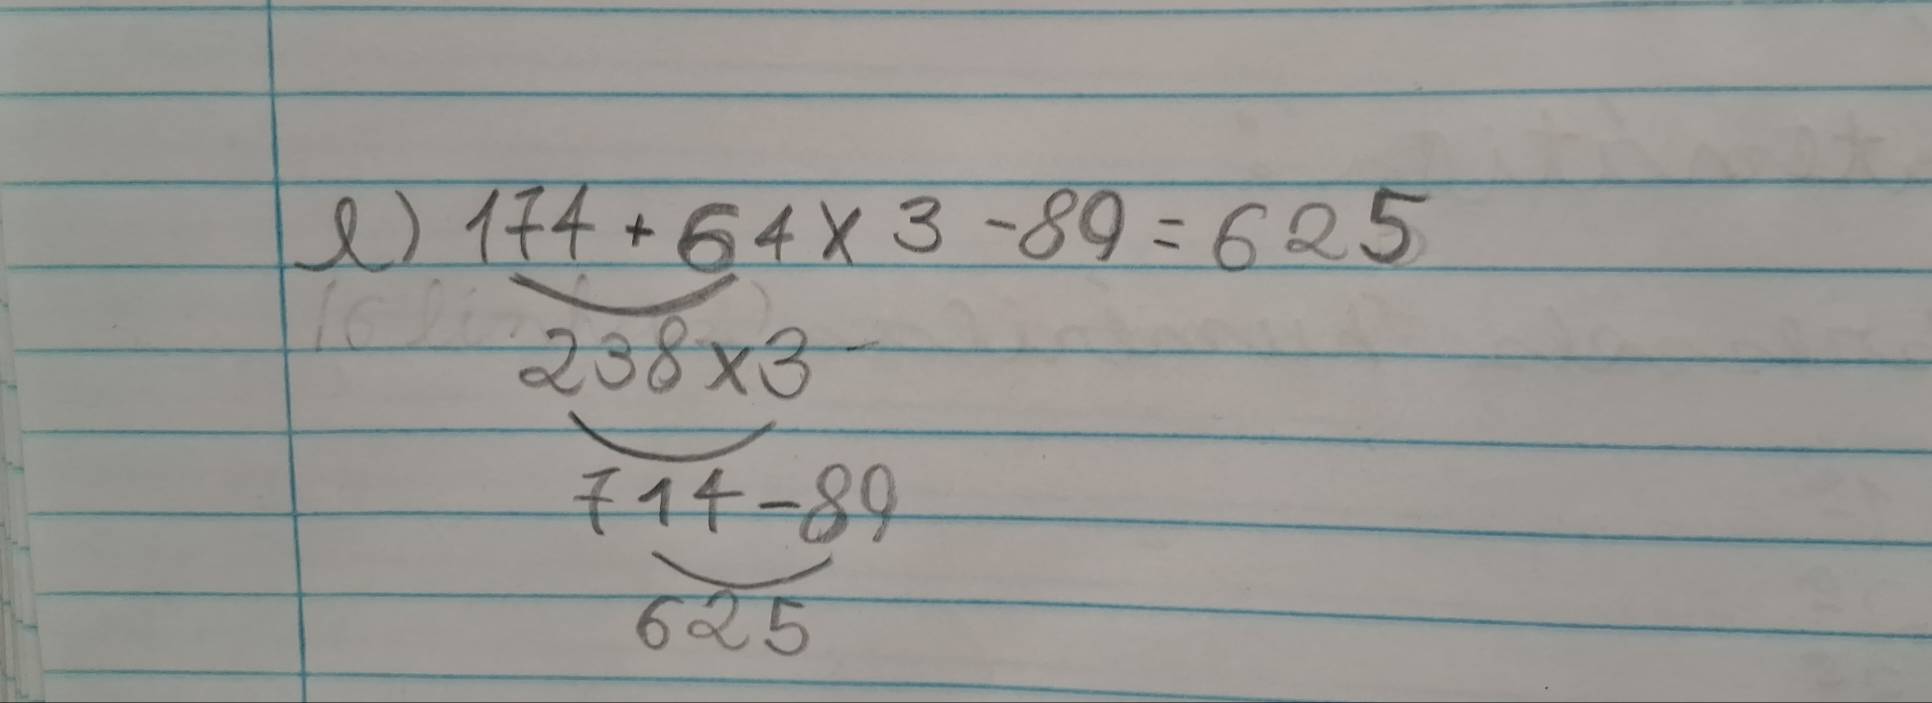 l) 174 + 64 x 3 - 89 = 625
238 x 3 -
714 - 89
625